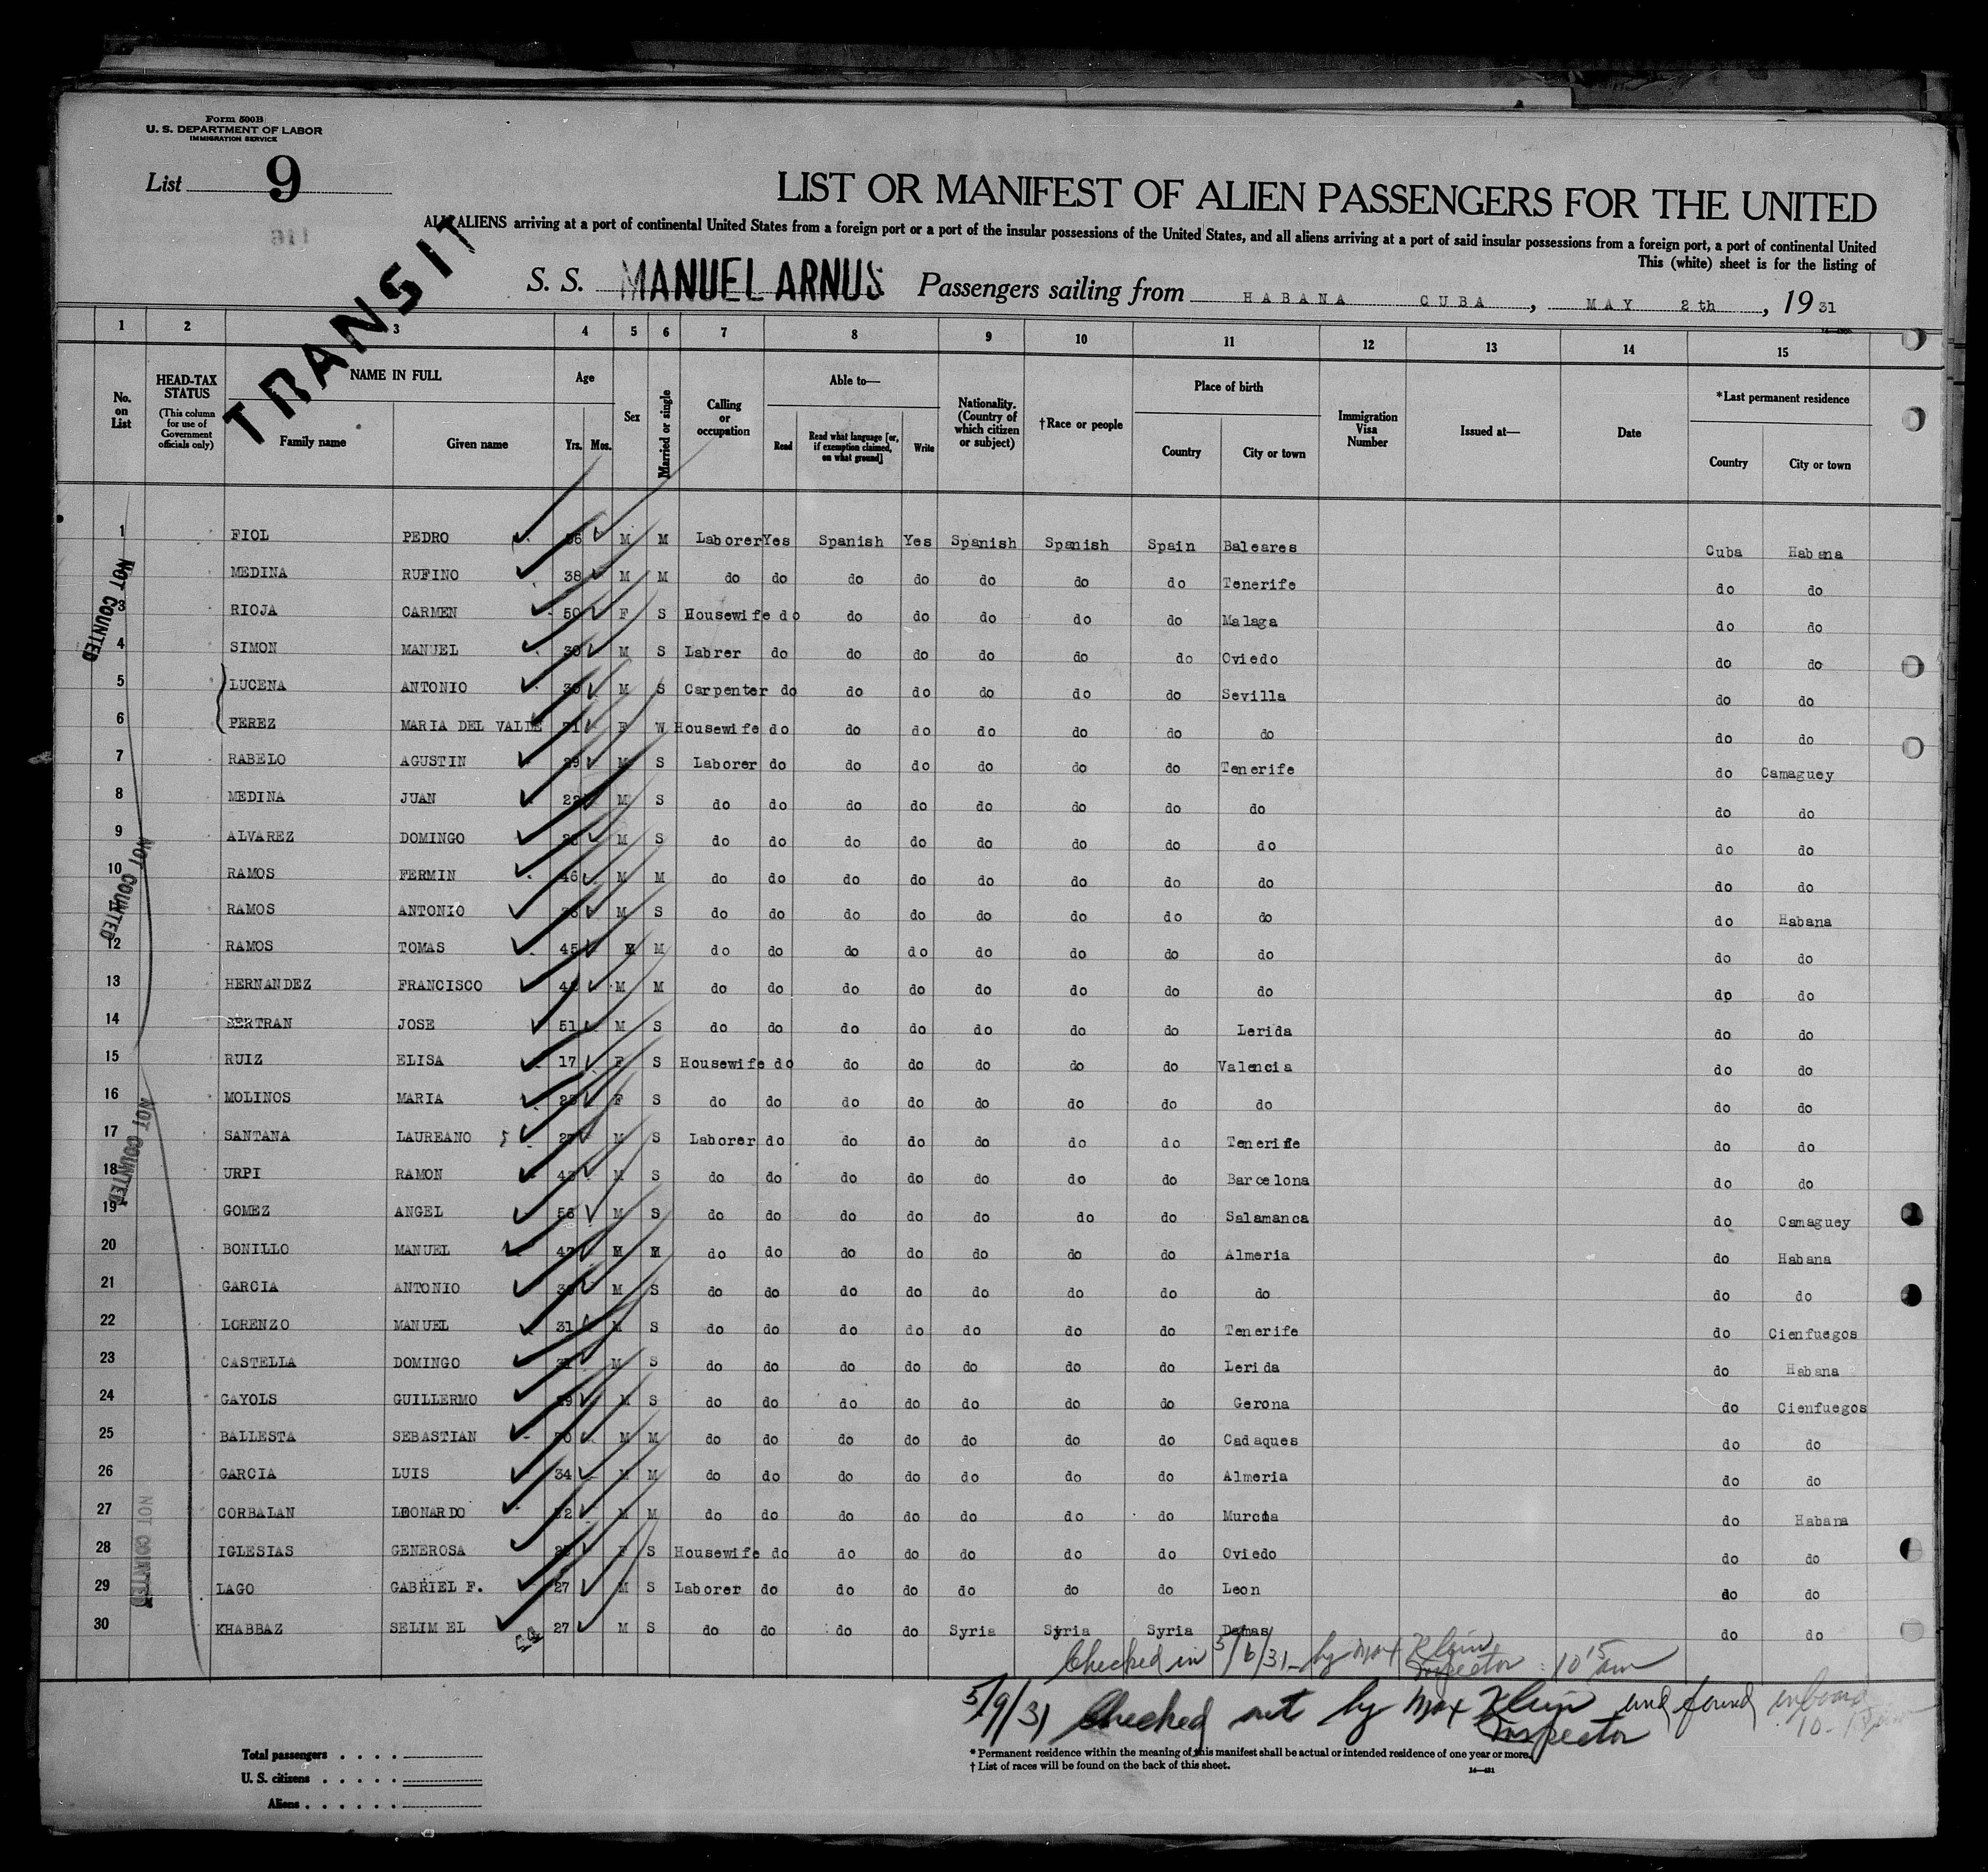 Form 500B
U. S. DEPARTMENT OF LABOR
IMMIGRATION SERVICE
List 9
116
LIST OR MANIFEST OF ALIEN PASSENGERS FOR THE UNITED
ALL ALIENS arriving at a port of continental United States from a foreign port or a port of the insular possessions of the United States, and all aliens arriving at a port of said insular possessions from a foreign port, a port of continental United
This (white) sheet is for the listing of
TRANSIT
S. S. MANUEL ARNUS Passengers sailing from HABANA CUBA, MAY 2th, 1931
1 2 3 4 5 6 7 8 9 10 11 12 13 14 15
No. on List
HEAD-TAX STATUS
(This column for use of Government officials only)
NAME IN FULL
Family name Given name
Age
Yrs. Mos.
Sex
Married or single
Calling or occupation
Able to—
Read Read what language [or, if exemption claimed, on what ground] Write
Nationality. (Country of which citizen or subject)
†Race or people
Place of birth
Country City or town
Immigration Visa Number
Issued at—
Date
*Last permanent residence
Country City or town
1 FIOL PEDRO M M Laborer Yes Spanish Yes Spanish Spanish Spain Baleares Cuba Habana
MEDINA RUFINO 38 M M do do do do do do do Tenerife do do
3 RIOJA CARMEN 50 F S Housewife do do do do do do Malaga do do
4 SIMON MANUEL 30 M S Labrer do do do do do do Oviedo do do
5 LUCENA ANTONIO 30 M S Carpenter do do do do do do Sevilla do do
6 PEREZ MARIA DEL VALLE 71 F W Housewife do do do do do do do do do
7 RABELO AGUSTIN 29 M S Laborer do do do do do do Tenerife do Camaguey
8 MEDINA JUAN 22 M S do do do do do do do do do do
9 ALVAREZ DOMINGO M S do do do do do do do do do do
10 RAMOS FERMIN 46 M M do do do do do do do do do do
RAMOS ANTONIO M S do do do do do do do do do Habana
12 RAMOS TOMAS 45 M M do do do do do do do do do do
13 HERNANDEZ FRANCISCO M M do do do do do do do do do do
14 BERTRAN JOSE 51 M S do do do do do do do Lerida do do
15 RUIZ ELISA 17 F S Housewife do do do do do do Valencia do do
16 MOLINOS MARIA F S do do do do do do do do do do
17 SANTANA LAUREANO 27 M S Laborer do do do do do do Tenerife do do
18 URPI RAMON 43 M S do do do do do do do Barcelona do do
19 GOMEZ ANGEL 56 M S do do do do do do do Salamanca do Camaguey
20 BONILLO MANUEL 47 M M do do do do do do do Almeria do Habana
21 GARCIA ANTONIO M S do do do do do do do do do do
22 LORENZO MANUEL 31 M S do do do do do do do Tenerife do Cienfuegos
23 CASTELLA DOMINGO M S do do do do do do do Lerida do Habana
24 GAYOLS GUILLERMO M S do do do do do do do Gerona do Cienfuegos
25 BALLESTA SEBASTIAN M M do do do do do do do Cadaques do do
26 GARCIA LUIS 34 M M do do do do do do do Almeria do do
27 CORBALAN LEONARDO M M do do do do do do do Murcia do Habana
28 IGLESIAS GENEROSA F S Housewife do do do do do do Oviedo do do
29 LAGO GABRIEL F. 27 M S Laborer do do do do do do Leon do do
30 KHABBAZ SELIM EL 27 M S do do do do Syria Syria Syria Damas do do
NOT COUNTED
NOT COUNTED
NOT COUNTED
NOT COUNTED
Checked in 5/6/31 - by Max Klein Inspector 10 15 am
5/9/31 Checked out by Max Klein Inspector and found onboard
Total passengers . . . .
U. S. citizens . . . . .
Aliens . . . . . .
* Permanent residence within the meaning of this manifest shall be actual or intended residence of one year or more.
† List of races will be found on the back of this sheet.
14—431